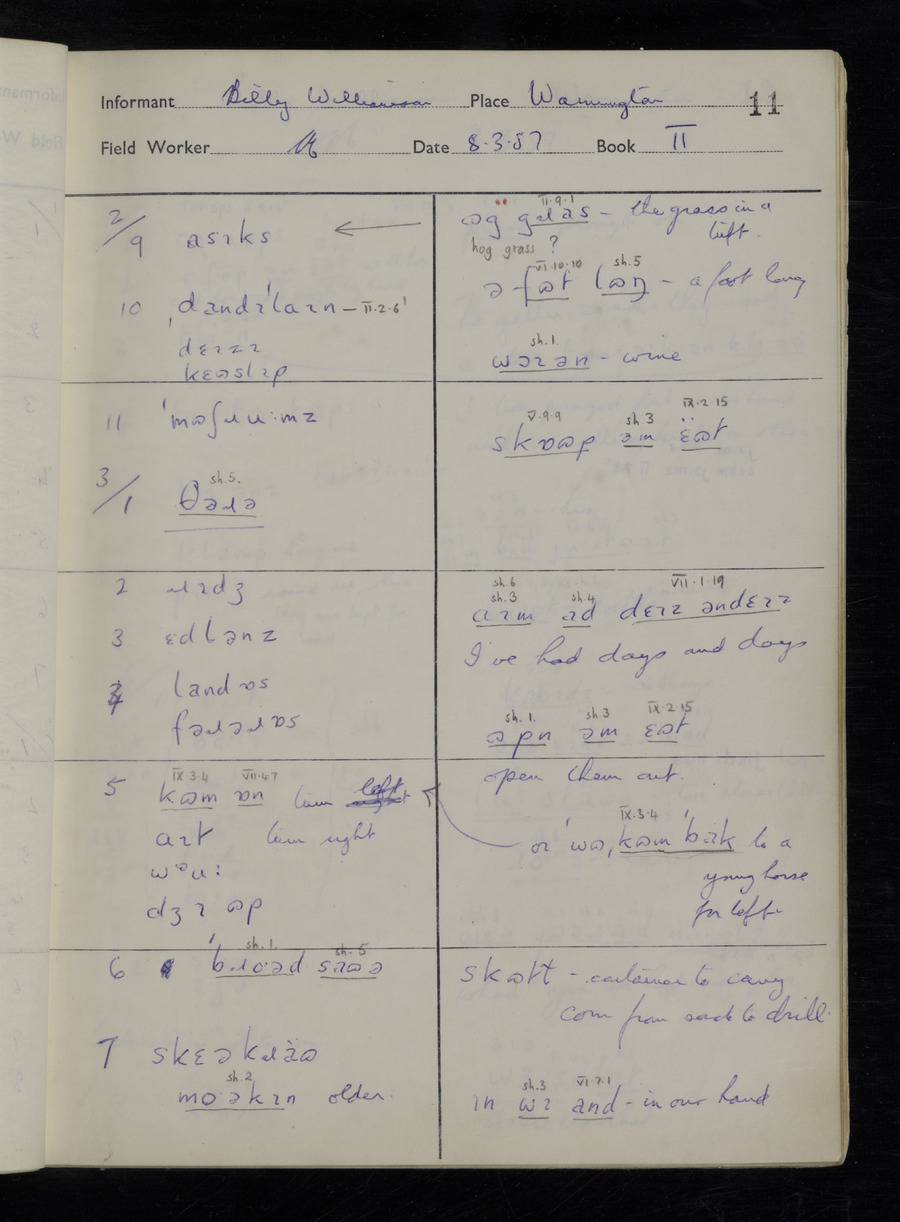 Informant Billy Williamson Place Warmington 11
Field Worker Date 8.3.57 Book II
2/9 asɪks
10 ˌdandɪˈlaɪn – II.2.6
dɛɪzɪ
kɛʊslɪp
11 ˈmʊʃɹuːmz
3/1 sh.5.
θəɹə
2 ɹɪdʒ
3 ɛdlənz
4 landɒs
fəɹəɹɒs
5 IX.3.4 VII.4.7
kʊm ɒn turn left
aɪt turn right
wᵊuː
dʒɪ ʊp
6 sh.1. sh.5
ˈbɹoəd
7 skɛəkɹäʊ
sh.2
moəkɪn older.
II.9.1
– the grass in a
hog grass ?
VI.10.10 sh.5
ə fʊt lʊŋ – a foot long
sh.1.
wəɪən – wine
V.9.9 sh.3 IX.2.15
skɒʊp əm ɛ̈ʊt
sh.6
sh.3 sh.4 VII.1.19
aɪm ɪd dɛɪz əndɛɪz
I've had days and days
sh.1. sh3 IX.2.15
ʊpn əm ɛʊt
open them out.
IX.3.4
or ˈwʊ, kʊm ˈbak to a
young horse
for left
skʊtt – container to carry
corn from sack to drill.
sh.3 VI.7.1
ɪn wɪ and – in our hand